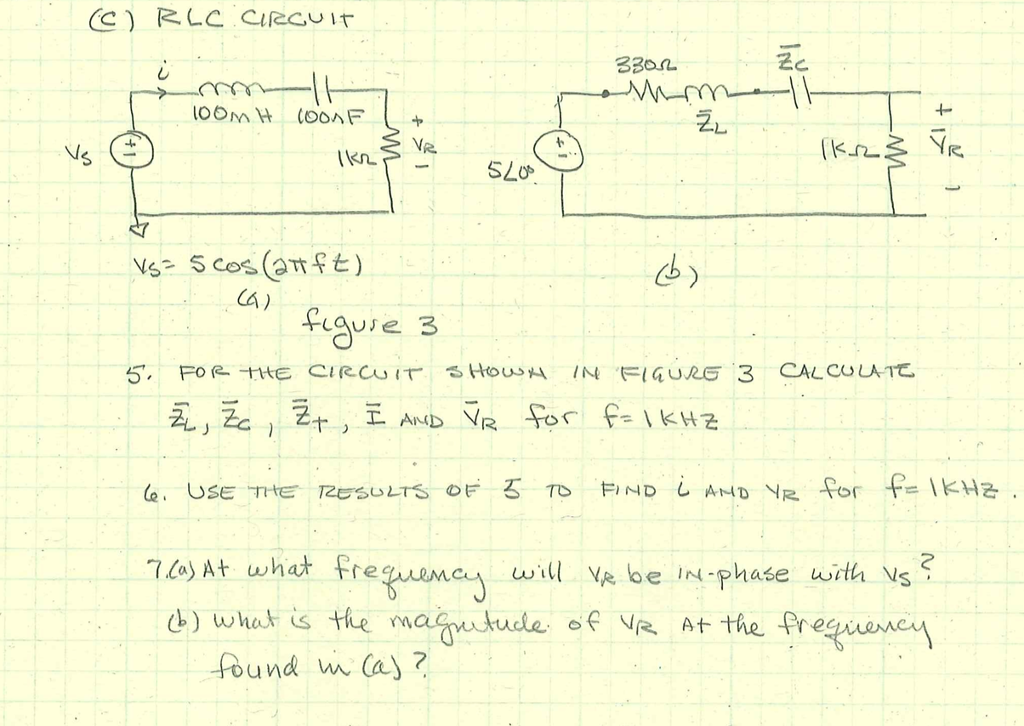 (C) RLC CIRCUIT
i
100mH 100nF
Vs
+
-
1KΩ
+
VR
-
Vs = 5 cos(2πft)
(a)
330Ω
Z̄c
Z̄L
5∠0°
+
-
1KΩ
+
V̄R
-
(b)
figure 3
5. FOR THE CIRCUIT SHOWN IN FIGURE 3 CALCULATE
Z̄L, Z̄c, Z̄t, Ī AND V̄R for f=1KHZ
6. USE THE RESULTS OF 5 TO FIND i AND VR for f=1KHZ.
7.(a) At what frequency will VR be IN-phase with Vs?
(b) what is the magnitude of VR At the frequency
found in (a)?